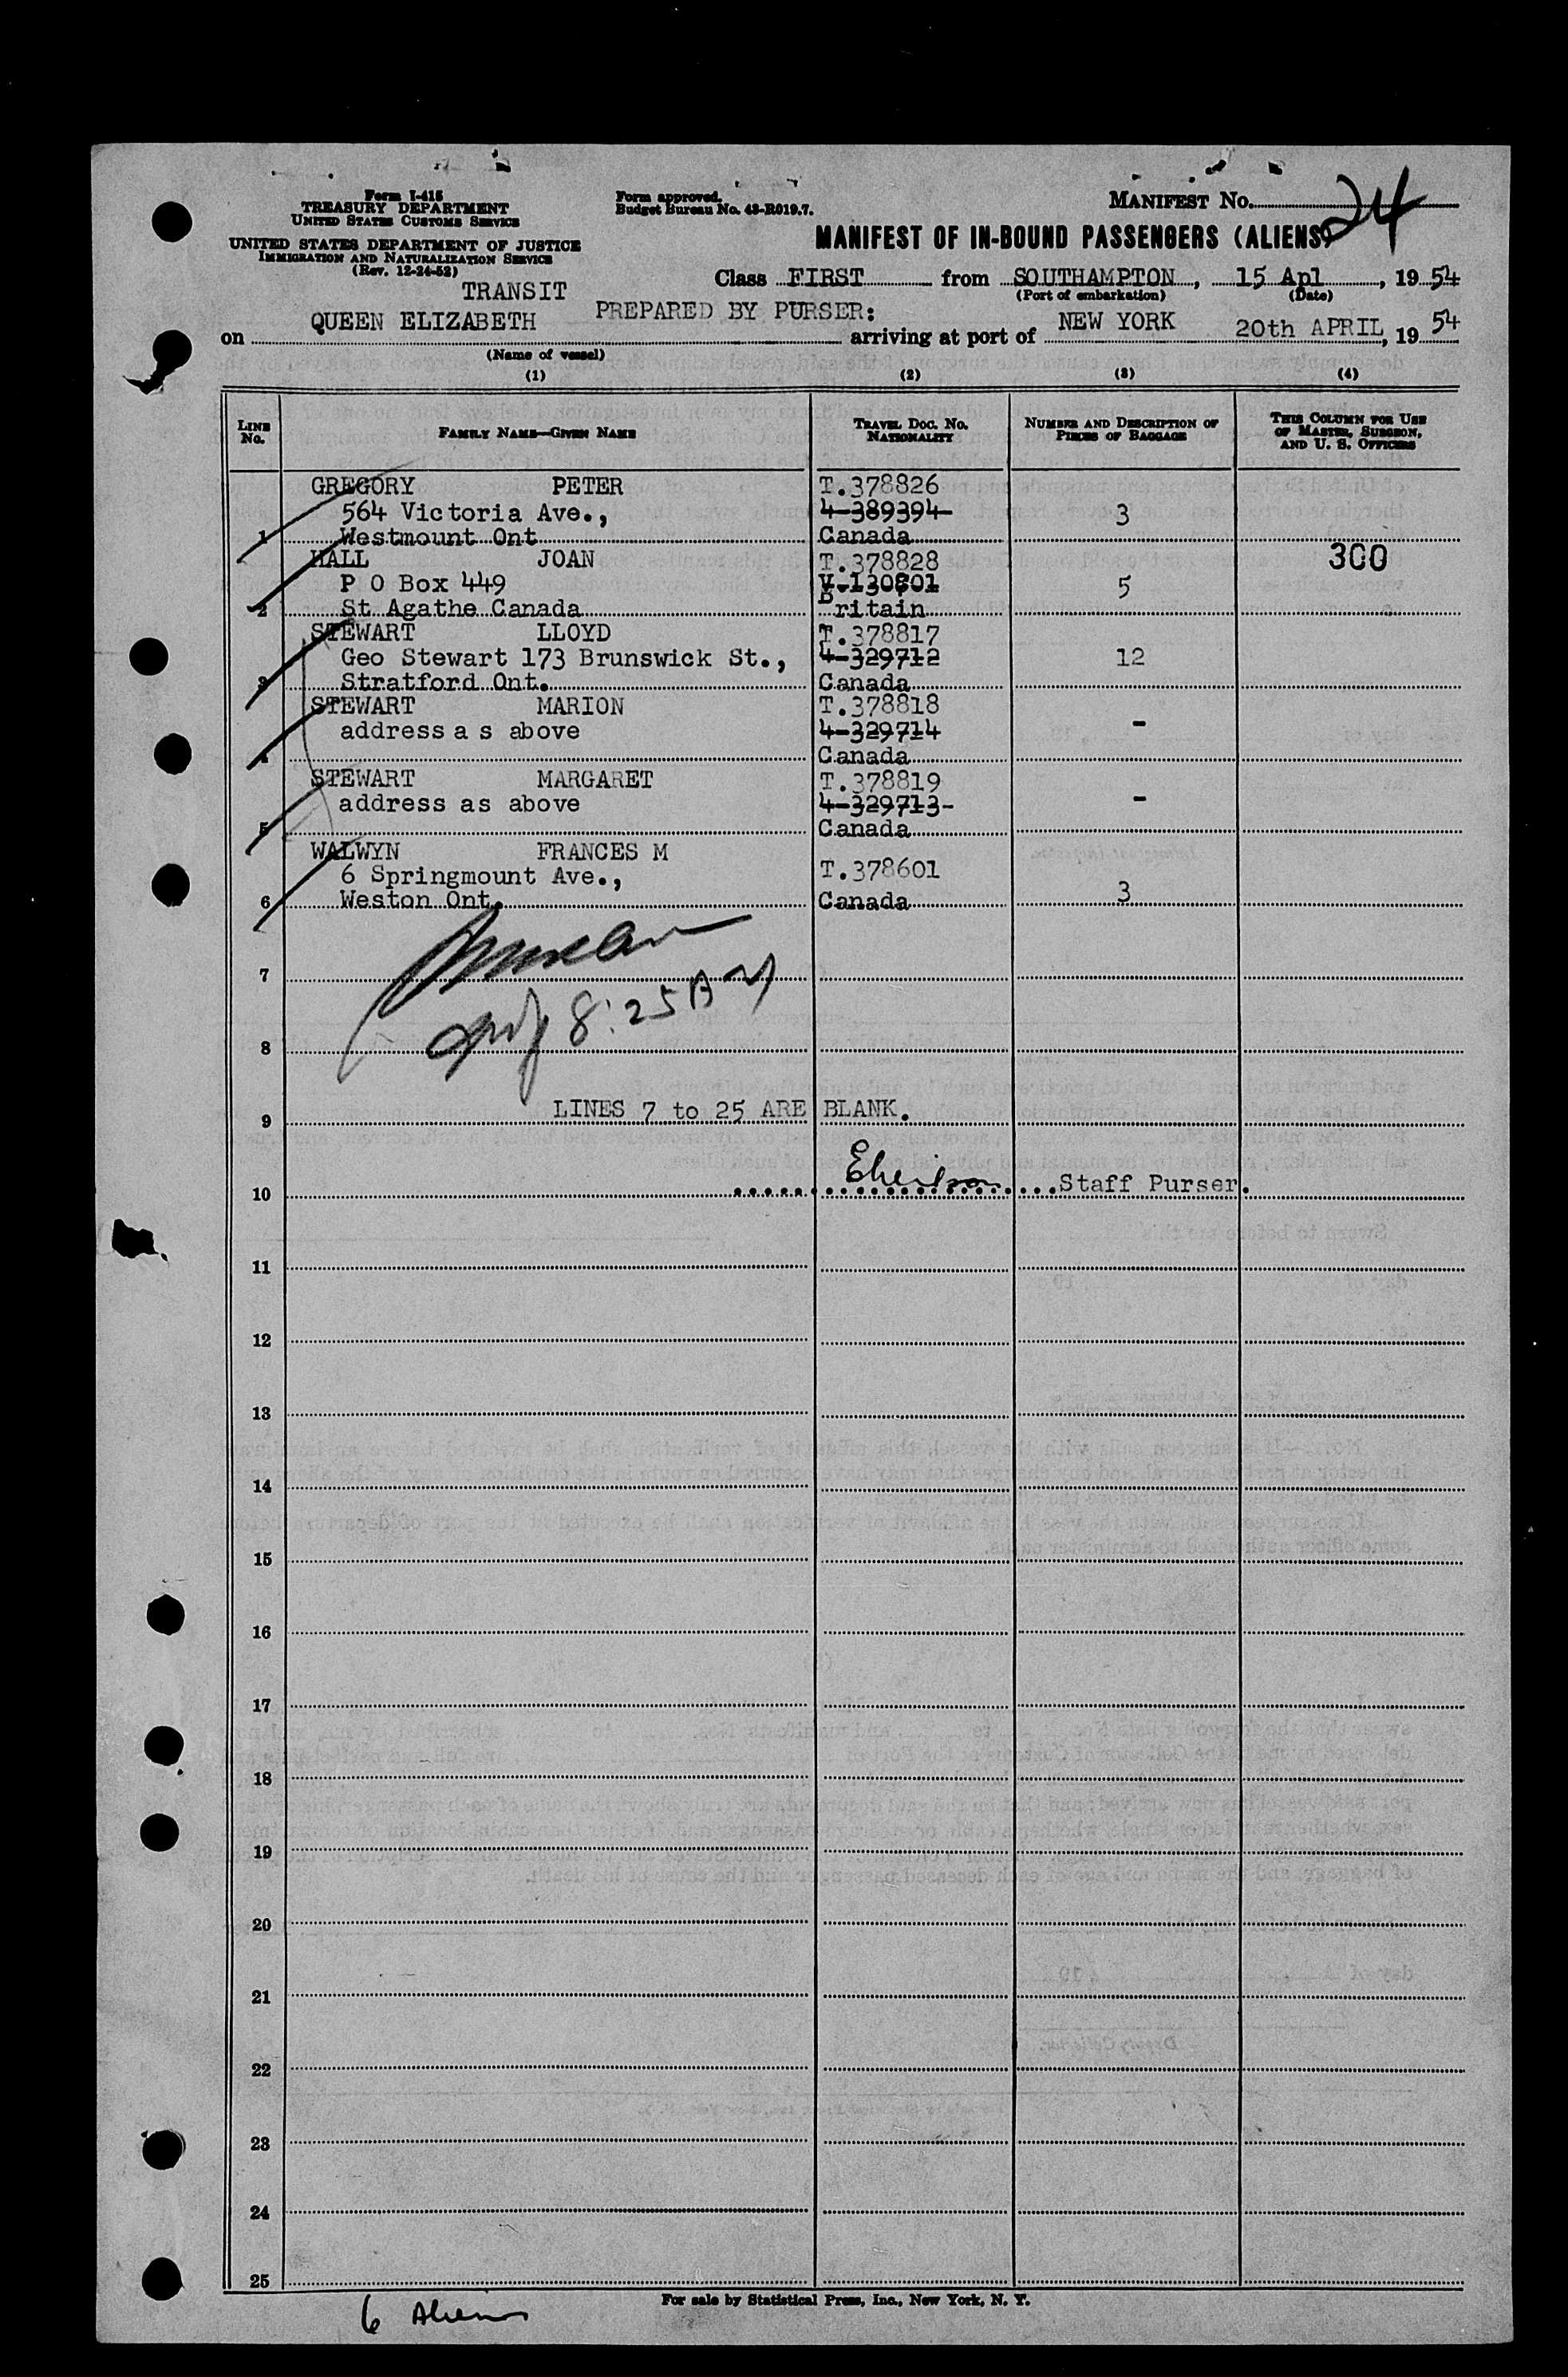 Form I-415
TREASURY DEPARTMENT
UNITED STATES CUSTOMS SERVICE
UNITED STATES DEPARTMENT OF JUSTICE
IMMIGRATION AND NATURALIZATION SERVICE
(Rev. 12-24-52)
Form approved.
Budget Bureau No. 43-R019.7.
MANIFEST No. 24
MANIFEST OF IN-BOUND PASSENGERS (ALIENS)
Class FIRST from SOUTHAMPTON, 15 Apl, 1954
(Port of embarkation) (Date)
TRANSIT
PREPARED BY PURSER:
on QUEEN ELIZABETH arriving at port of NEW YORK 20th APRIL, 1954
(Name of vessel)
(1) (2) (3) (4)
LINE No. FAMILY NAME—GIVEN NAME TRAVEL DOC. NO. NATIONALITY NUMBER AND DESCRIPTION OF PIECES OF BAGGAGE THIS COLUMN FOR USE OF MASTER, SURGEON, AND U. S. OFFICERS
GREGORY PETER T.378826
564 Victoria Ave., 4-389394 3
1 Westmount Ont Canada
HALL JOAN T.378828 300
P O Box 449 V.130801 5
2 St Agathe Canada Britain
STEWART LLOYD T.378817
Geo Stewart 173 Brunswick St., 4-329712 12
3 Stratford Ont. Canada
STEWART MARION T.378818
address a s above 4-329714 -
4 Canada
STEWART MARGARET T.378819
address as above 4-329713- -
5 Canada
WALWYN FRANCES M
6 Springmount Ave., T.378601
6 Weston Ont. Canada 3
7
8:25 AM
8
LINES 7 to 25 ARE BLANK.
9
10 Staff Purser.
11
12
13
14
15
16
17
18
19
20
21
22
23
24
25
For sale by Statistical Press, Inc., New York, N. Y.
6 Aliens